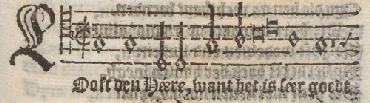 LOoft den Heere, want het is seer goedt